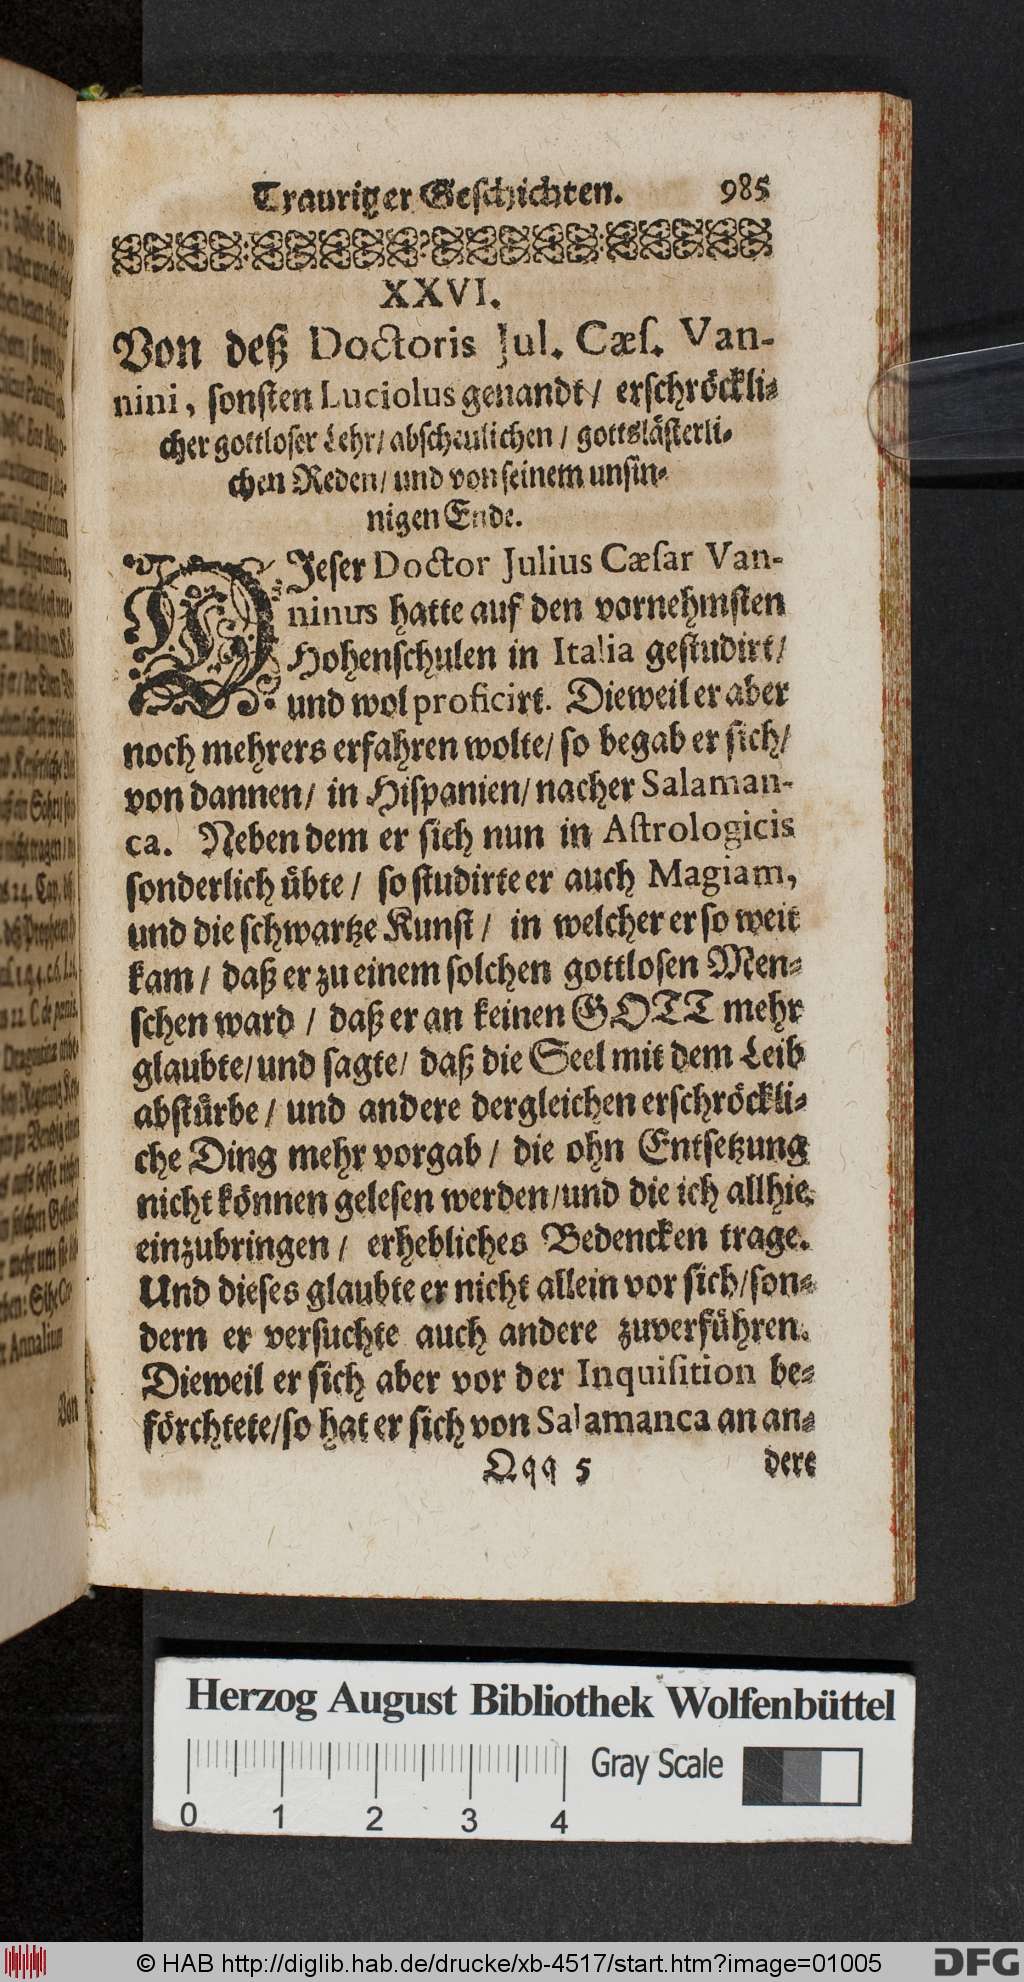 Trauriger Geschichten. 985
XXVI.
Von deß Doctoris Jul. Cæſ. Van-
nini, sonsten Luciolus genandt/ erschröckli-
cher gottloser Lehr/ abscheulichen / gottslästerli-
chen Reden/ und von seinem unsin-
nigen Ende.
DJeser Doctor Julius Cæſar Van-
ninus hatte auf den vornehmsten
Hohenschulen in Italia gestudirt/
und wol proficirt. Dieweil er aber
noch mehrers erfahren wolte/ so begab er sich/
von dannen/ in Hispanien/ nacher Salaman-
ca. Neben dem er sich nun in Aſtrologicis
sonderlich übte / so studirte er auch Magiam,
und die schwartze Kunst / in welcher er so weit
kam / daß er zu einem solchen gottlosen Men-
schen ward / daß er an keinen GOTT mehr
glaubte/ und sagte/ daß die Seel mit dem Leib
abstürbe / und andere dergleichen erschröckli-
che Ding mehr vorgab / die ohn Entsetzung
nicht können gelesen werden/ und die ich allhie
einzubringen / erhebliches Bedencken trage.
Und dieses glaubte er nicht allein vor sich/ son-
dern er versuchte auch andere zuverführen.
Dieweil er sich aber vor der Inquiſition be-
förchtete/ so hat er sich von Salamanca an an-
Qqq 5 dere
Herzog August Bibliothek Wolfenbüttel
Gray Scale
0 1 2 3 4
© HAB http://diglib.hab.de/drucke/xb-4517/start.htm?image=01005
DFG